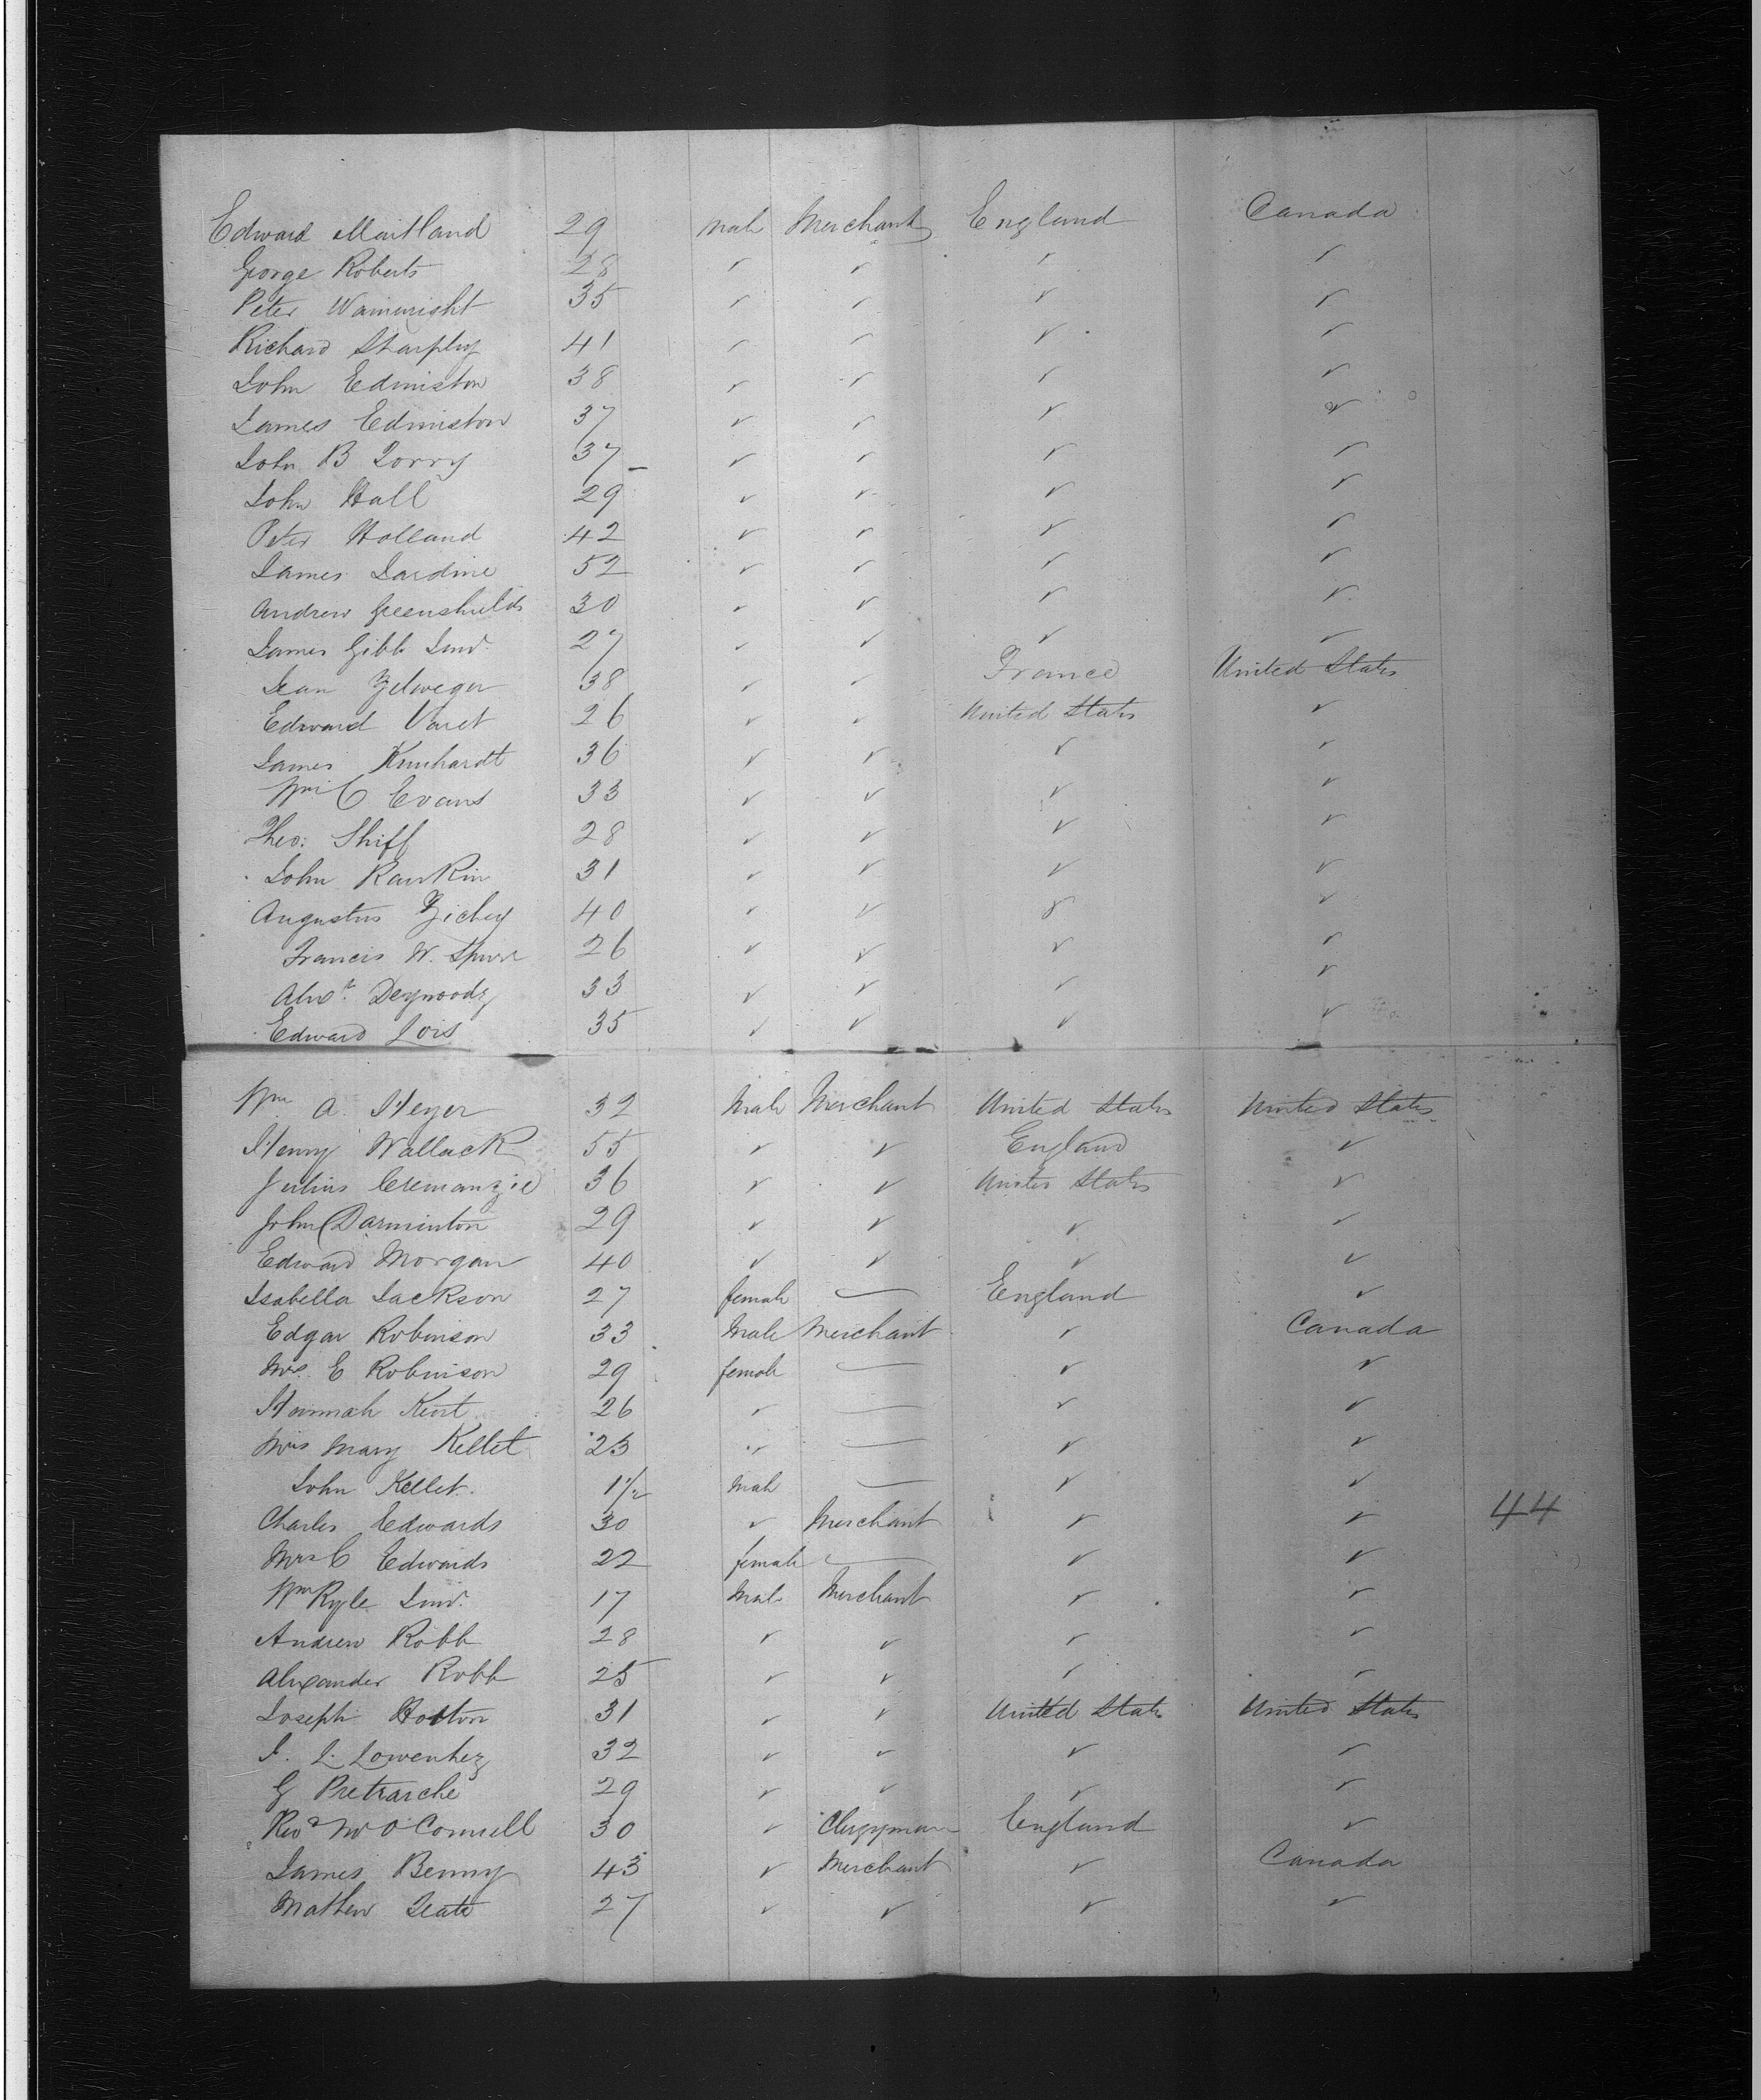 Edward Maitland 29 Male Merchant England Canada
George Roberts 28 ✓ ✓ ✓ ✓
Peter Wainwright 35 ✓ ✓ ✓ ✓
Richard Sharpley 41 ✓ ✓ ✓ ✓
John Edmiston 38 ✓ ✓ ✓ ✓
James Edmiston 37 ✓ ✓ ✓ ✓
John B Torry 37 ✓ ✓ ✓ ✓
John Hall 29 ✓ ✓ ✓ ✓
Peter Holland 42 ✓ ✓ ✓ ✓
James Jardine 52 ✓ ✓ ✓ ✓
Andrew Greenshields 30 ✓ ✓ ✓ ✓
James Gibb Junr 27 ✓ ✓ ✓ ✓
Jean Zelweger 38 ✓ ✓ France United States
Edward Varet 26 ✓ ✓ United States ✓
James Kunhardt 36 ✓ ✓ ✓ ✓
Wm C Evans 33 ✓ ✓ ✓ ✓
Theo: Shiff 28 ✓ ✓ ✓ ✓
John Rankin 31 ✓ ✓ ✓ ✓
Augustus Zichey 40 ✓ ✓ ✓ ✓
Francis W. 26 ✓ ✓ ✓ ✓
Alexr. 33 ✓ ✓ ✓ ✓
Edward Lois 35 ✓ ✓ ✓ ✓
Wm A. Heyer 32 Male Merchant United States United States
Henry Wallack 55 ✓ ✓ England ✓
Julius Cremanzie 36 ✓ ✓ United States ✓
John Darminton 29 ✓ ✓ ✓ ✓
Edward Morgan 40 ✓ ✓ ✓ ✓
Isabella Jackson 27 female — England ✓
Edgar Robinson 33 Male Merchant ✓ Canada
Mrs. E Robinson 29 female — ✓ ✓
Hannah Kent 26 ✓ — ✓ ✓
Mrs Mary Kellet 23 ✓ — ✓ ✓
John Kellet. 1½ Male — ✓ ✓
Charles Edwards 30 ✓ Merchant ✓ ✓ 44
Mrs C Edwards 22 female — ✓ ✓
Wm Ryle Junr. 17 Male Merchant ✓ ✓
Andrew Robb 28 ✓ ✓ ✓ ✓
Alexander Robb 25 ✓ ✓ ✓ ✓
Joseph Hotton 31 ✓ ✓ United States United States
32 ✓ ✓ ✓ ✓
G Pretrarche 29 ✓ ✓ ✓ ✓
Revd Mr O'Connell 30 ✓ Clergyman England ✓
James Benny 43 ✓ Merchant ✓ Canada
Mathew Teate 27 ✓ ✓ ✓ ✓